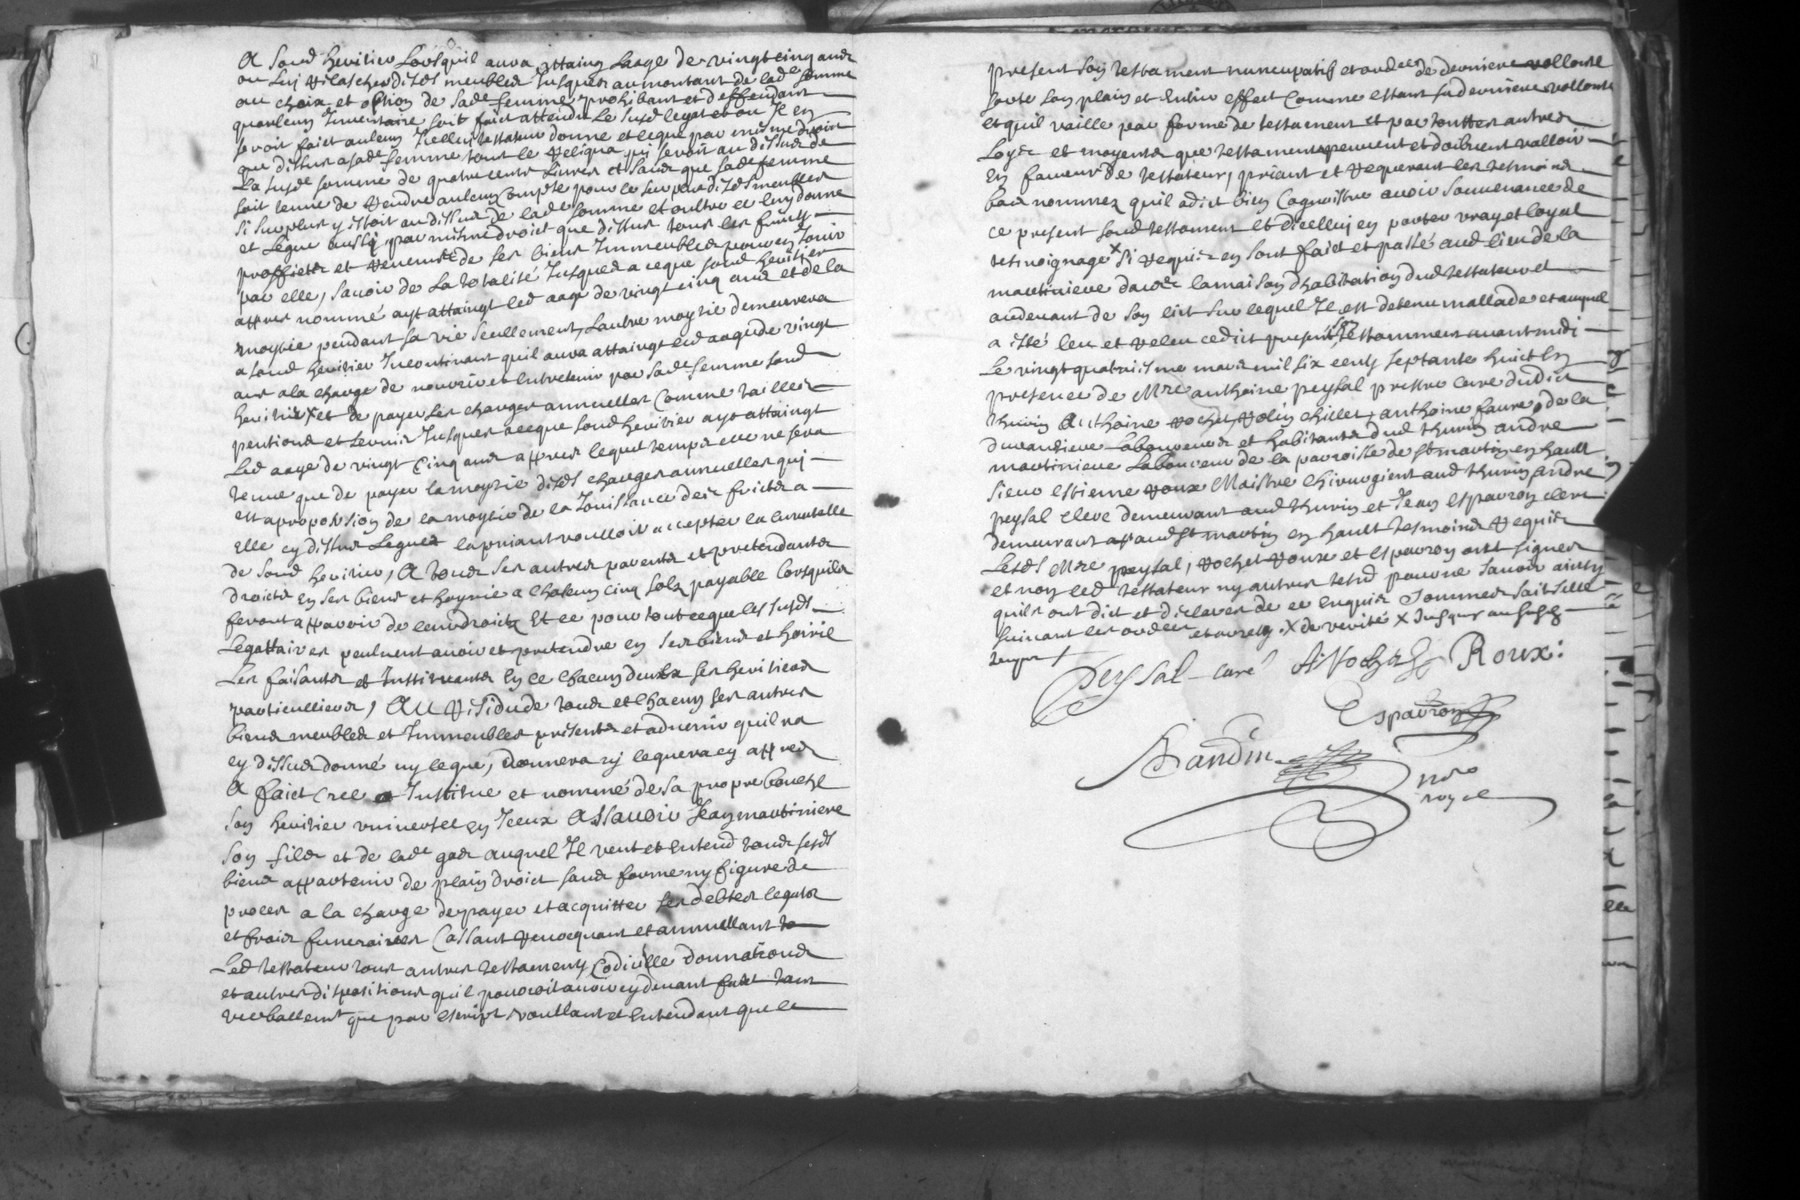 A sond heritier lorsquil aura attaing laage de vingt cinq ans
ou luy relascher disd meubles jusques au montant de lade somme
au choix et option de sade femme, prohibant et deffendant
quaulcun inventaire soit faict attendu le susd legat et ou il en
seroit faict aulcun icelluy testateur donne et legue par mesme droict
que dessus a sade femme tout le reliqua qui seroit au dessus de
la susde somme de quatre cents livres et sans que sade femme
soit tenue de rendre aulcun compte pour le surplus disd meubles
si surplus y estoit au dessus de lade somme et oultre ce luy donne
et legue aussy par mesme droict que dessus tous les fruits
profficts et revenus de ses biens immeubles pour en jouir
par elle, savoir de la totalité jusques a ce que sond heritier
appres nommé ayt attaingt led aage de vingt cinq ans et de la
moytie pendant sa vie seullement, lautre moytie demeurera
a sond heritier incontinant quil aura attaingt led aage de vingt
ans a la charge de nourrir et entretenir par sade femme sond
heritier et de payer les charges annuelles comme tailles
pentions et servis jusques a ce que sond heritier ayt attaingt
led aage de vingt cinq ans appres lequel temps elle ne sera
tenue que de payer la moytie disd charges annuelles qui
est a proportion de la moytie de la jouissance desd fruicts a
elle cy dessus legués la priant voulloir accepter la curatelle
de sond heritier, A tous ses autres parents et pretendants
droicts en ses biens et hoyrie a chascun cinq solz payable lorsquils
feront apparoir de leur droictz et ce pour tout ce que les susds
legattaires peulvent avoir et pretendre en ses biens et hoirie
les faisants et instituants en ce chacun deux ses heritiers
particulliers, Au residu de tous et chacun ses autres
biens meubles et immeubles presents et advenir quil na
cy dessus donné ny legue, donnera ny leguera cy appres
A faict cree et institue et nommé de sa propre bouche
son heritier universel en iceux Assavoir Jean martiniere
son fils et de lade auquel il veut et entend tous sesds
biens appartenir de plain droict sans forme ny figure de
proces a la charge de payer et acquitter ses debtes legats
et frais funeraires Cassant revocquant et annullant
led testateur tous autres testaments codicille donnations
et autres dispositions quil pourroit avoir cy devant faict tant
verballemt que par escript voullant et entendant que le
present son testament nuncupatif et ordce de derniere vollonte
sorte son plain et entier effect comme estant sa derniere vollonte
et quil vaille par forme de testament et par touttes autres
loys et moyents que testaments peuvent et doibvent valloir
en faveur de testateur, priant et requerant les tesmoins
bas nommez quil a dict bien cognoistre avoir souvenance de
ce present sond testament et dicelluy en porter vray et loyal
tesmoignage X si requis en sont faict et passé aud lieu de la
martiniere dans la maison dhabitation dud testateur et
au devant de son lict sur lequel il est detenu mallade et auquel
a esté leu et releu cedict present testament avant midi
le vingt quatriesme mars mil six cents septante huict en
presence de Mre anthoine peysal prestre cure dudict
thurin Anthoine vochet, chillet, anthoine faure de la
durandiere laboureurs et habitants dud thurin andre
martiniere laboureur de la parroisse de St martin en hault
sieur estienne roux Maistre chirurgient aud thurin andre
peysal clerc demeurant aud thurin et Jean esparron clerc
demeurant aud St martin en hault tesmoins requis
lesds Mre peysal, vochet roux et esparron ont signes
et non led testateur ny autres tesds pour ne savoir ainsy
quils ont dict et declares de ce enquis sommes
suivant les ordces et X de verité X jusques au
Peysal curé A Vochet Roux
Esparron
Blandin
no re
royal